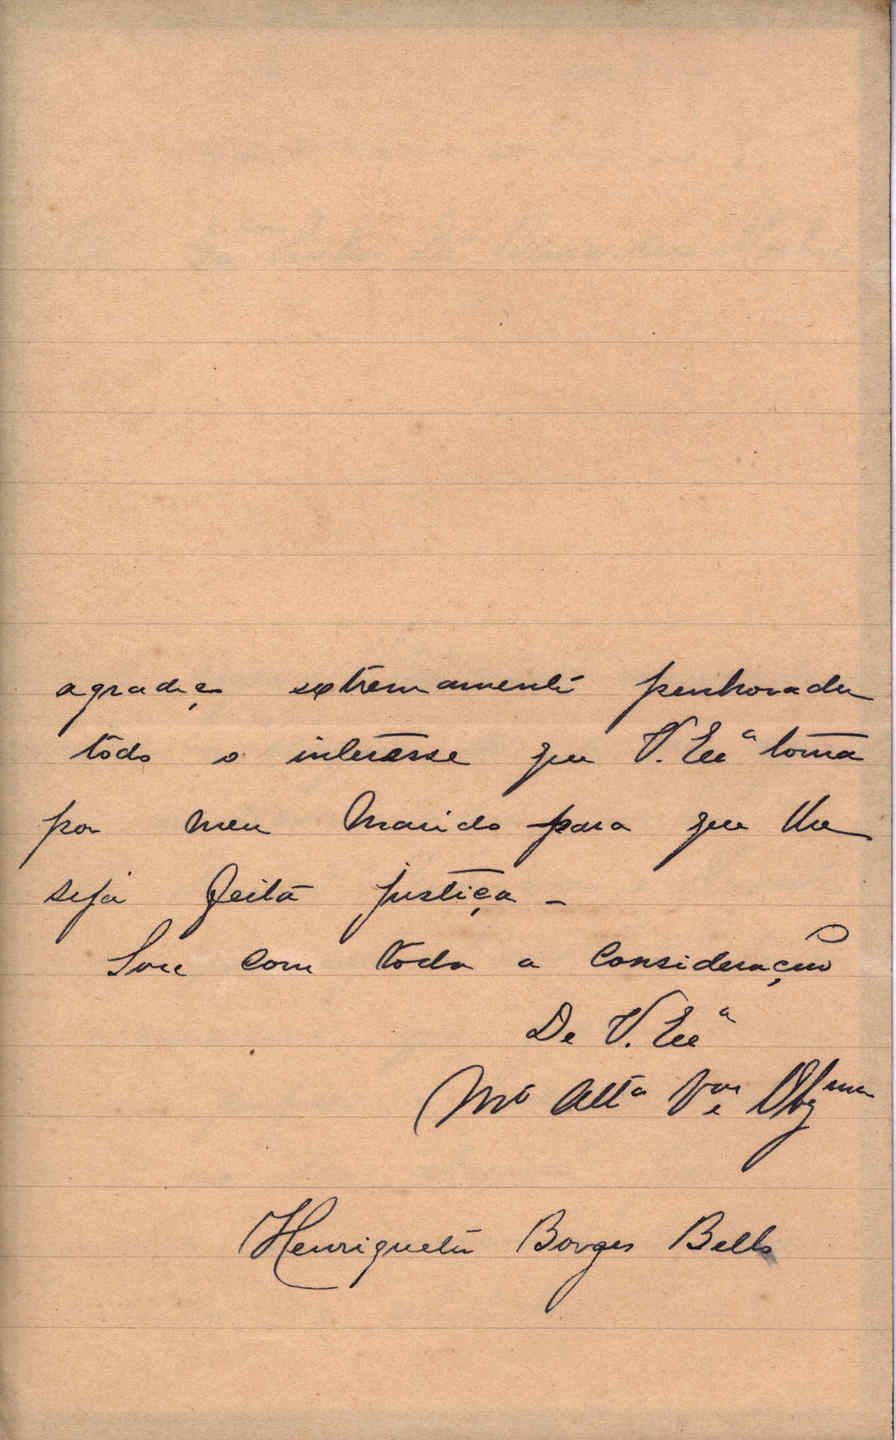 agradeço extremamente penhorada
todo o interesse que V. Exª toma
por meu Marido para que lhe
seja feita justiça -
Sou com toda a consideração
De V. Exª
Mº Attª Vᵒʳᵃ e Obgᵐᵃ
Henriqueta Borges Bello